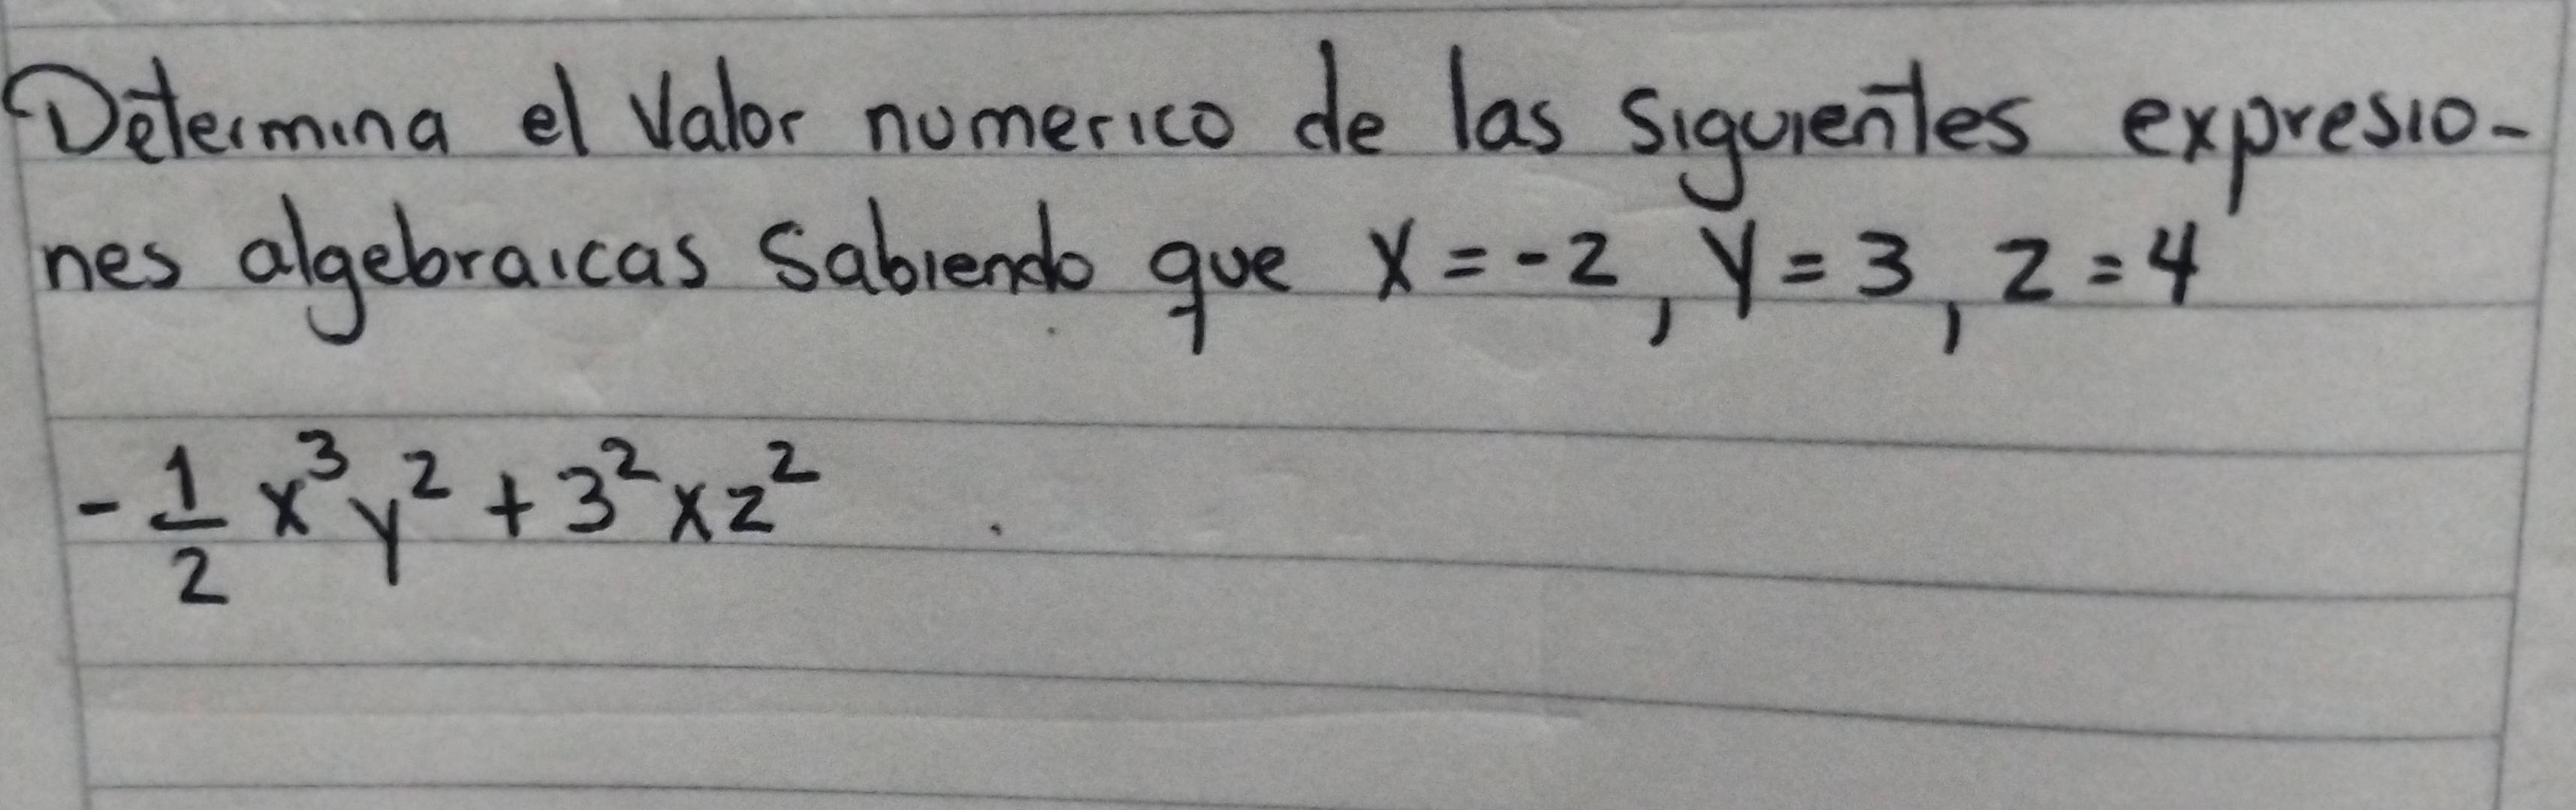 Determina el Valor numerico de las siguientes expresio-
nes algebraicas Sabiendo que x = -2, y = 3, z = 4
- 1/2 x³y² + 3²xz²